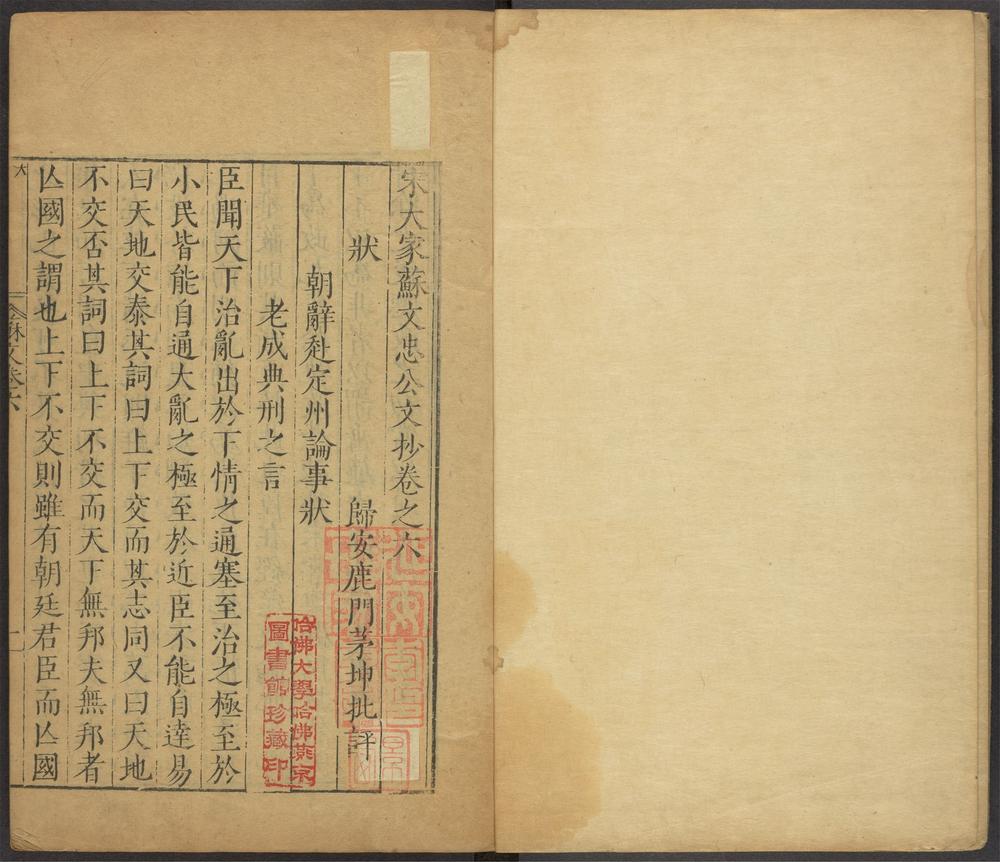 宋大家蘇文忠公文抄卷之六
歸安鹿門茅坤批評
狀
朝辭赴定州論事狀
老成典刑之言
臣聞天下治亂出於下情之通塞至治之極至於
小民皆能自通大亂之極至於近臣不能自達易
曰天地交泰其詞曰上下交而其志同又曰天地
不交否其詞曰上下不交而天下無邦夫無邦者
亾國之謂也上下不交則雖有朝廷君臣而亾國
哈佛大學哈佛燕京
圖書館珍藏印